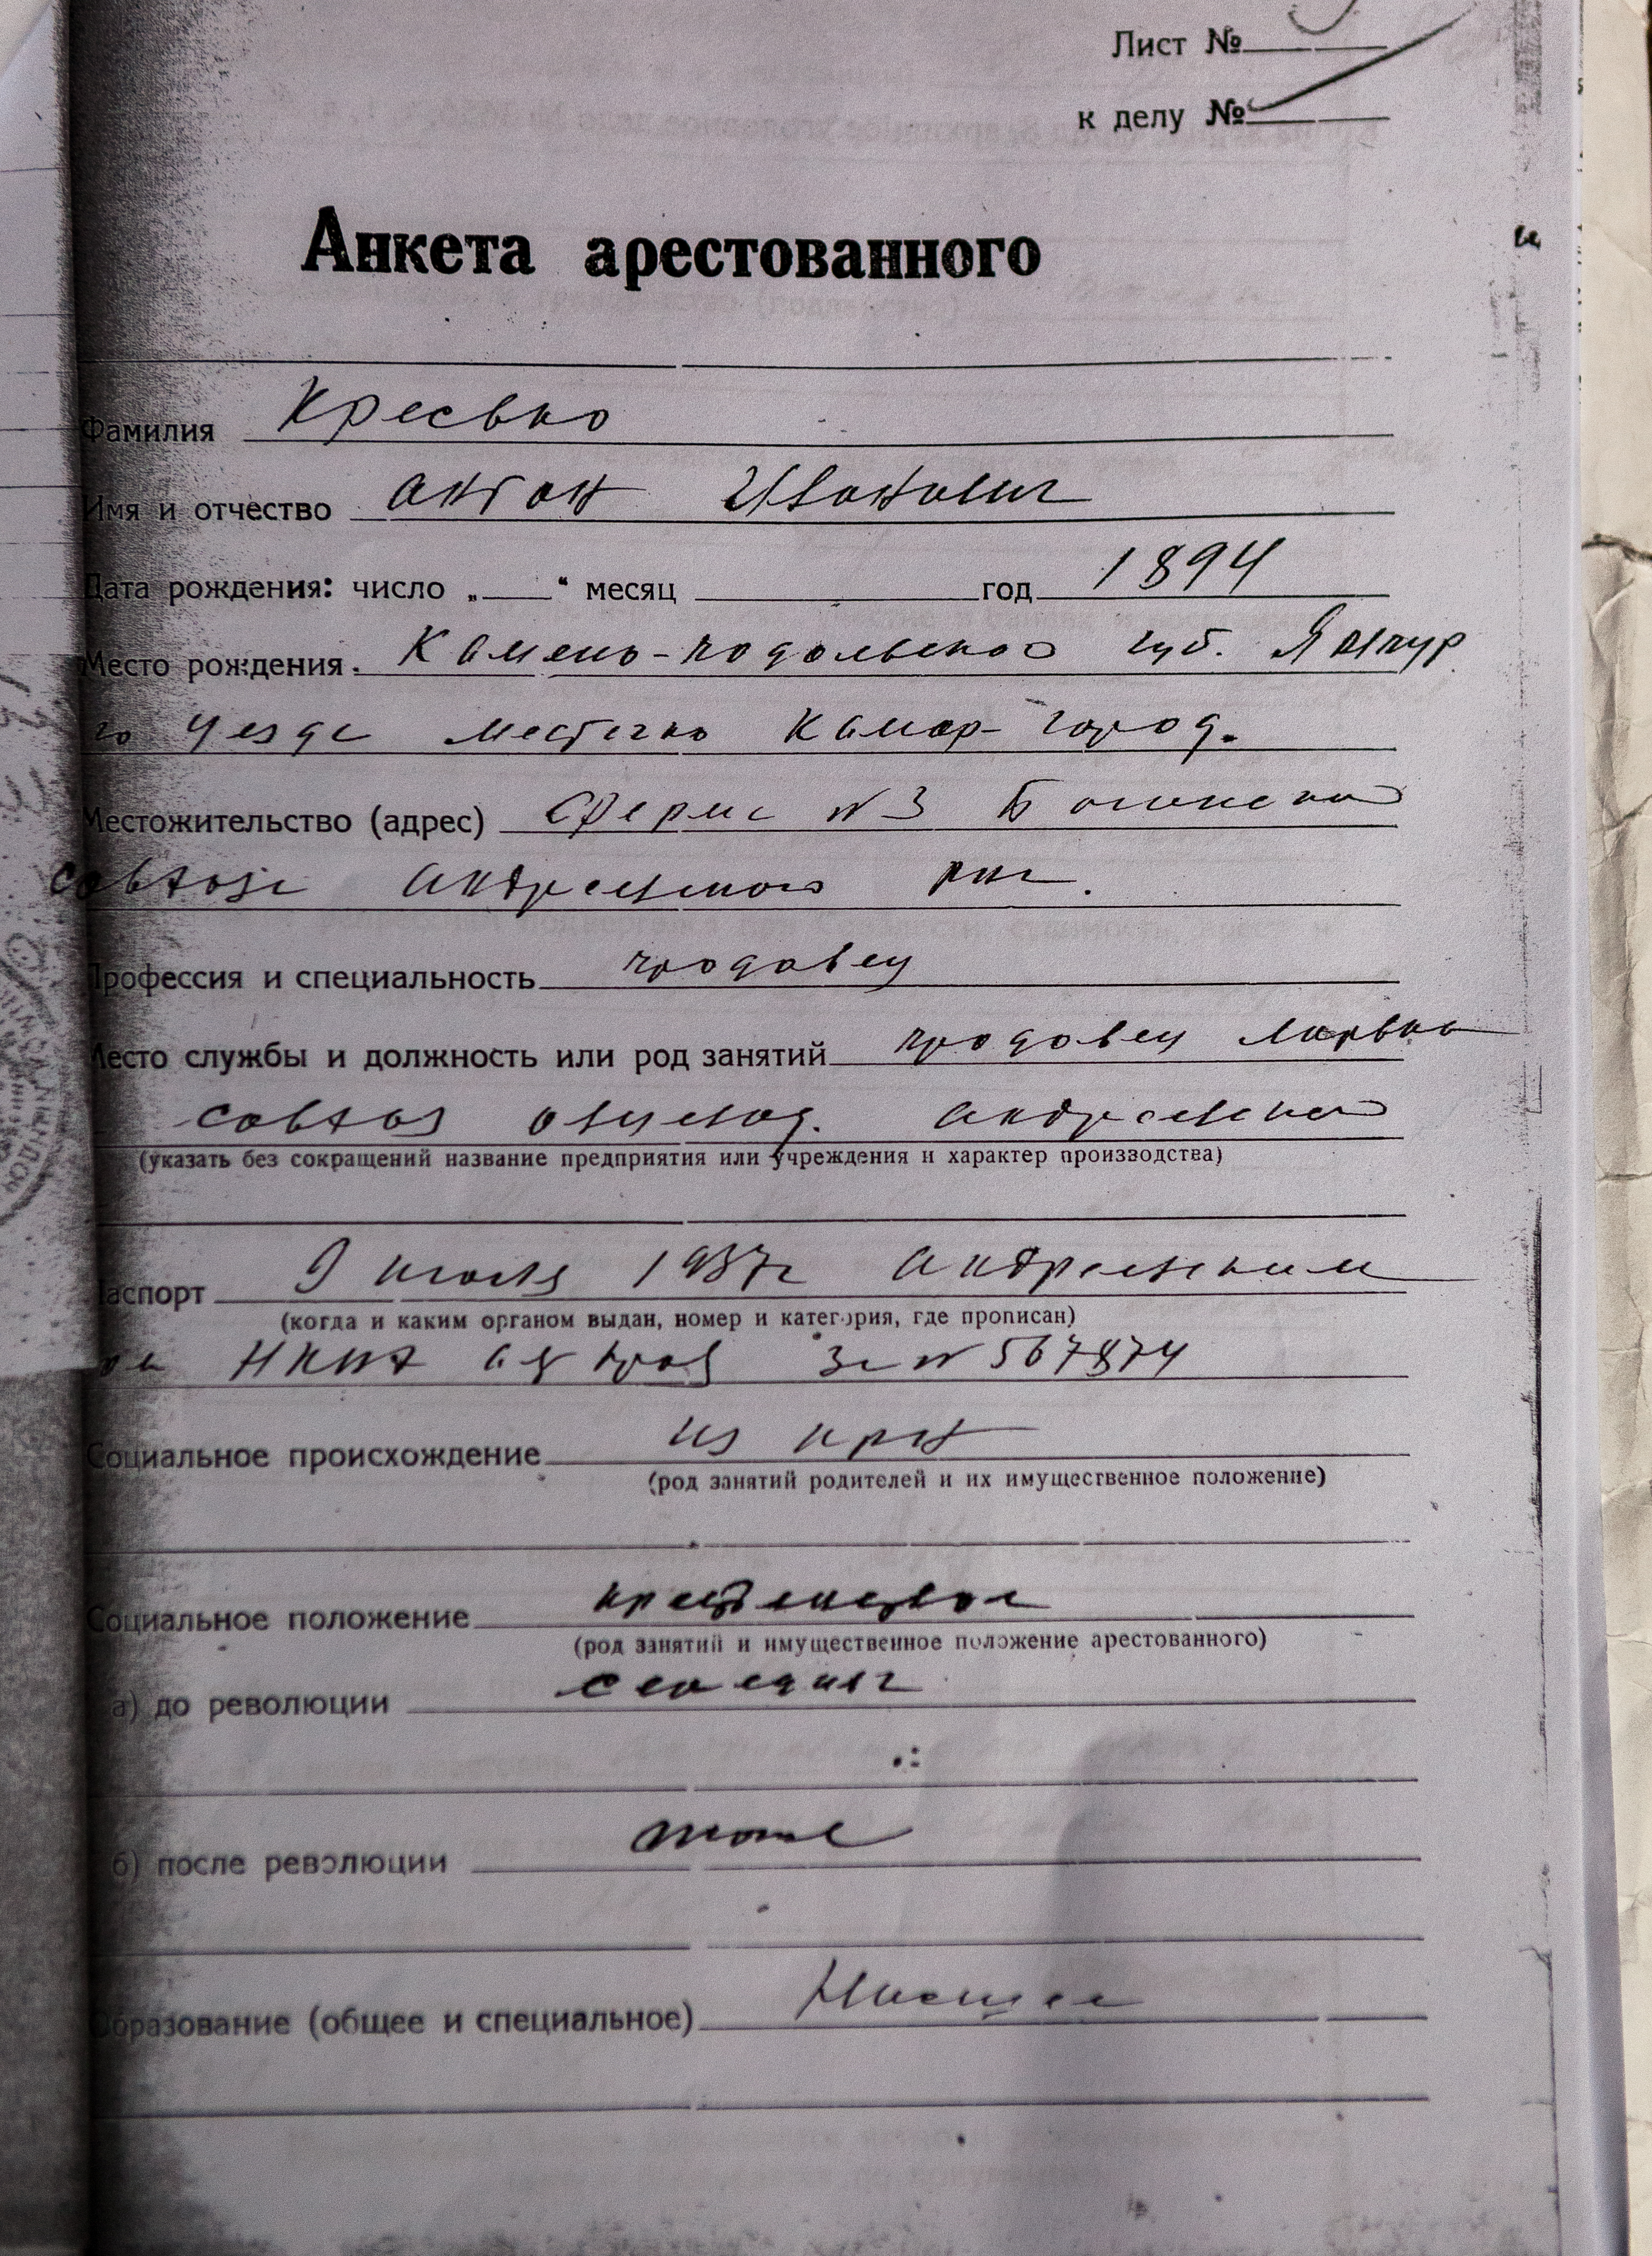 Лист №
к делу №
Анкета арестованного
Фамилия Кресько
Имя и отчество Антон Иванович
Дата рождения: число „ “ месяц год 1894
Место рождения. Камень-подольской губ. Ямпур
го уезде местечко Комар-город.
Местожительство (адрес) Ферме N 3
совхозе Андреевского
Профессия и специальность продавец
Место службы и должность или род занятий продавец ларька
совхоз овцевод. Андреевского
(указать без сокращений название предприятия или учреждения и характер производства)
Паспорт 9 июля 1937г Андреевским
(когда и каким органом выдан, номер и категория, где прописан)
НКВД за N 567874
Социальное происхождение из крн
(род занятий родителей и их имущественное положение)
Социальное положение
(род занятий и имущественное положение арестованного)
а) до революции
б) после революции тоже
Образование (общее и специальное) Низшее